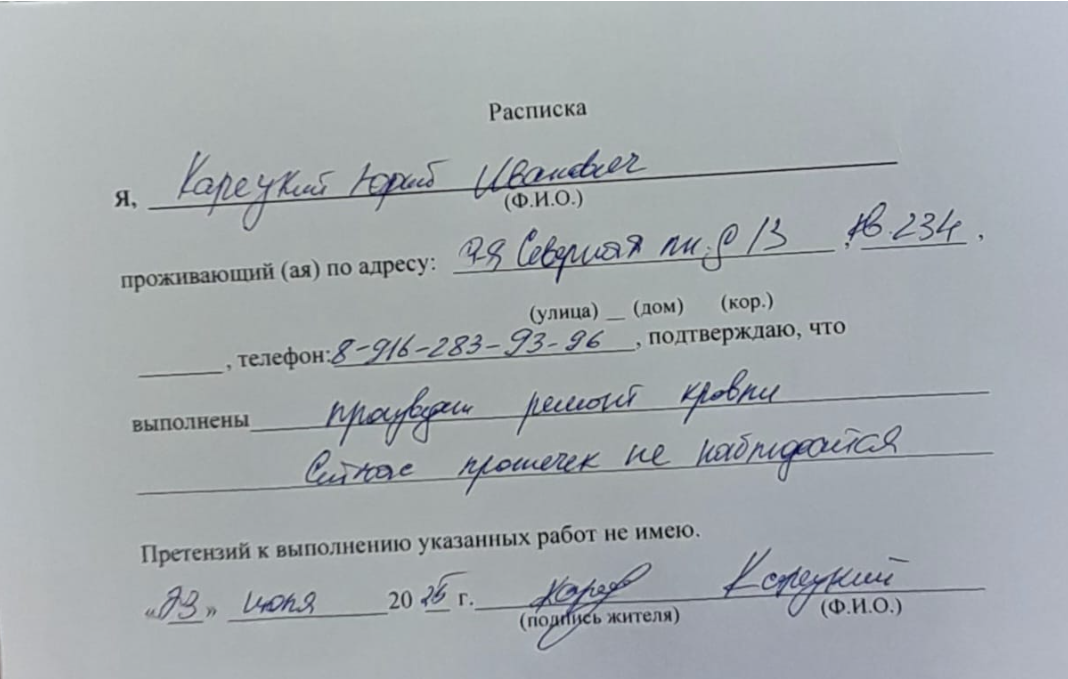 Расписка
Я, Карецкий Юрий Иванович
(Ф.И.О.)
проживающий (ая) по адресу: 9я Северная лин. д 13, кв. 234,
(улица) _ (дом) (кор.)
______, телефон: 8-916-283-93-96, подтверждаю, что
выполнены ремонт кровли
Сейчас протечек не наблюдается
Претензий к выполнению указанных работ не имею.
«23» июля 2025 г. Карец Карецкий
(подпись жителя) (Ф.И.О.)